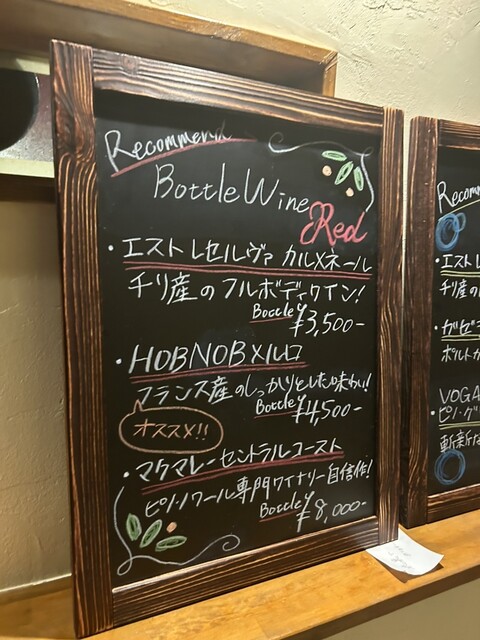 Recommend
Bottle Wine
Red
・エストレセルヴァ カルメネール
チリ産のフルボディワイン!
Bottle ¥3,500-
・HOBNOBメルロ
フランス産のしっかりとした味わい!
Bottle ¥4,500-
オススメ!!
・マクマレーセントラルコースト
ピノ・ノワール専門ワイナリー自信作!
Bottle ¥8,000-
Recomm
・エスト
チリ産の
VOGA
ピノ・グ
斬新な